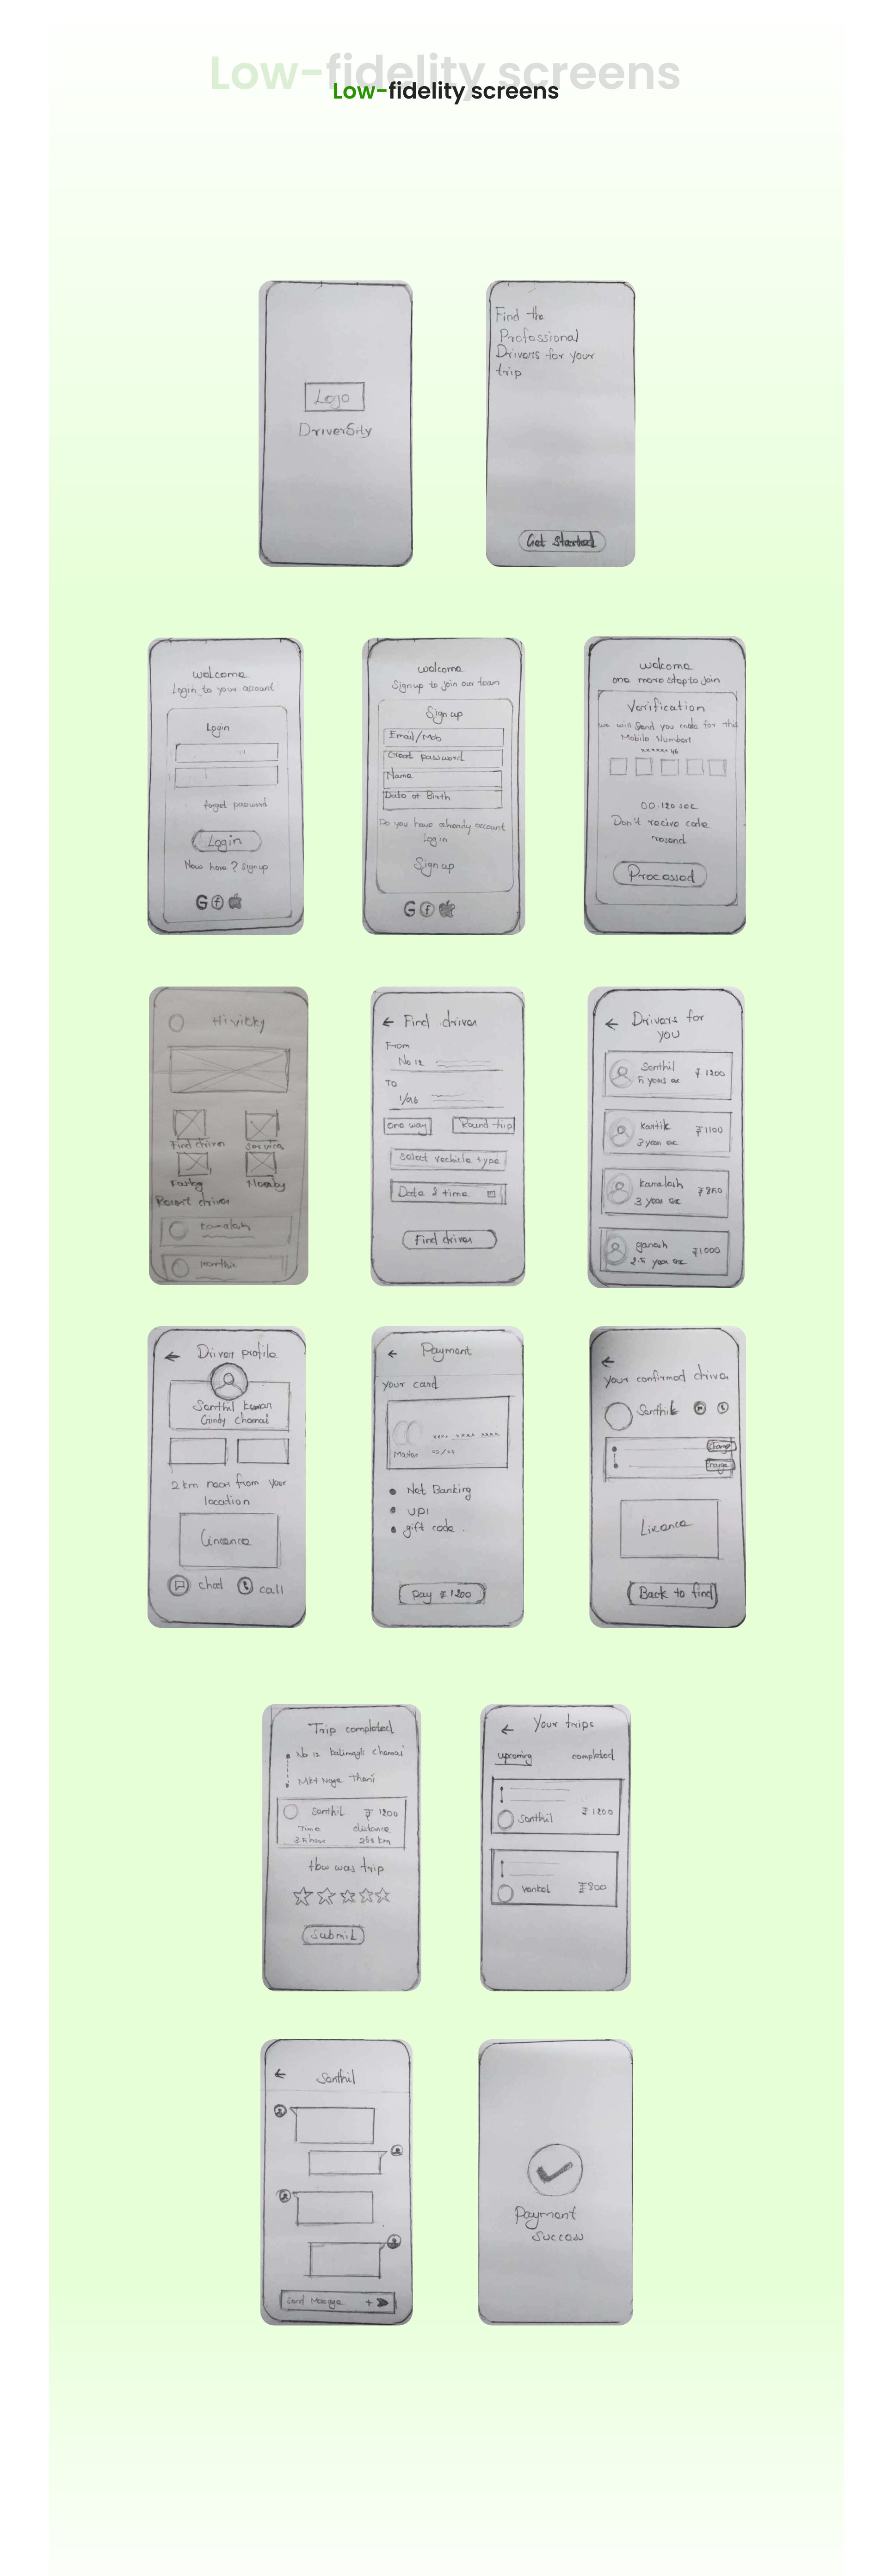 Low-fidelity screens
Low-fidelity screens
Logo
Find the
Profossional
Drivers for your
trip
Get Started
welcome
Login to your account
Login
forget password
Login
New here ? Signup
G f
welcome
Signup to join our team
Sign up
Email/Mob
Creat password
Name
Date of Birth
Do you have already account
Login
Sign up
G f
welcome
one more step to join
Verification
we will Send you code for this
Mobile Number
xxxxxx 46
00:120 sec
Don't recive code
resend
Processed
Hi vicky
Find driver
Service
Recent driver
Kamalesh
← Find driver
From
No 12
TO
one way
Round trip
Select vechicle type
Date & time
Find driver
← Drivers for
you
Senthil
₹ 1200
5 years ex
Kartik
₹ 1100
3 year ex
Kamalesh
₹ 850
3 year ex
ganesh
₹ 1000
2.5 year ex
← Driver profile
Senthil kumar
Guindy Chennai
2 km near from your
location
Lincence
chat
call
← Payment
your card
Master
Net Banking
UPI
gift code .
Pay ₹ 1200
←
Your confirmed driver
Senthil
Change
Change
Licence
Back to find
Trip completed
No 12
Chennai
Theni
Senthil
₹ 1200
Time
distance
km
How was trip
Submit
← Your trips
upcoming
completed
Senthil
₹ 1200
Venket
₹ 800
← Senthil
Send Message
+
Payment
Success